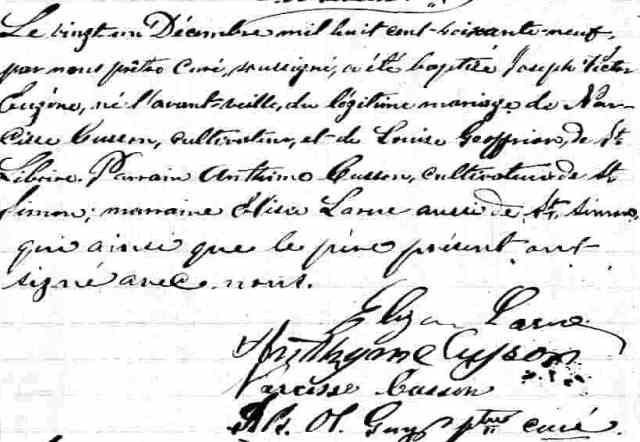 Le vingt un Décembre mil huit cent-soixante-neuf,
par nous prêtre Curé, soussigné, a été baptisé Joseph Victor
Eugène, né l'avant-veille, du légitime mariage de Nar-
cisse Cusson, cultivateur, et de Louise Geoffrion, de St
Liboire. Parrain Anthime Cusson, cultivateur de St
Simon; marraine Elise Larue aussi de St. Simon,
qui ainsi que le père présent ont
signé avec nous.
Larue
Anthyme Cusson
Narcisse Cusson
Guy ptre curé.